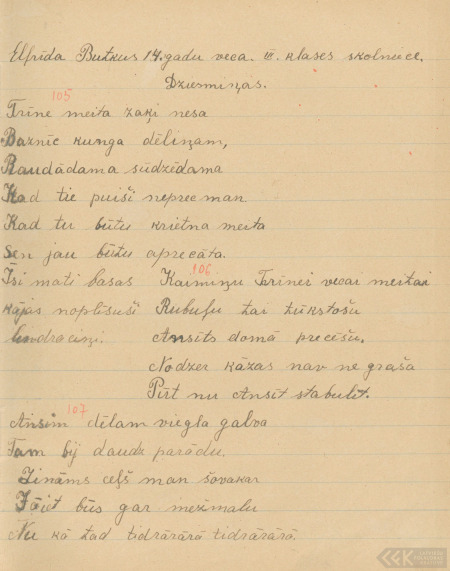 Elfrīda Butkus 14. gadu veca. III. klases skolniece.
Dziesmiņas.
105
Trīne meita zaķi nesa
Baznīc kunga dēliņam,
Raudādama sūdzēdama
Kad tie puiši neprec man.
Kad tu būtu krietna meita
Sen jau būtu aprecāta.
Īsi mati basas
kājas noplīsuši
lindraciņi.
106
Kaimiņu Trīnei vecai meitai
Rubuļu tai tūkstošu
Ansīts domā precēšu,
Nodzer kāzas nav ne graša
Pīrt nu Ansīt stabulīt.
107
Ansim dēlam viegla galva
Tam bij daudz parādu.
Zināms ceļš man šovakar
Jāiet būs gar mežmalu
Nu kā tad tidrārārā tidrārārā.